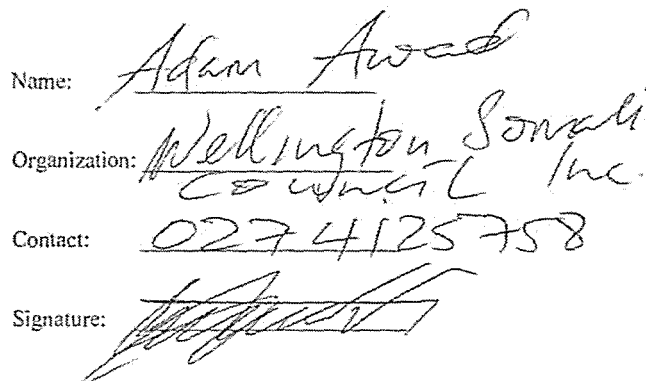 Name: Adam Awad
Organization: Wellington Somali
Council Inc.
Contact: 027 4125758
Signature: